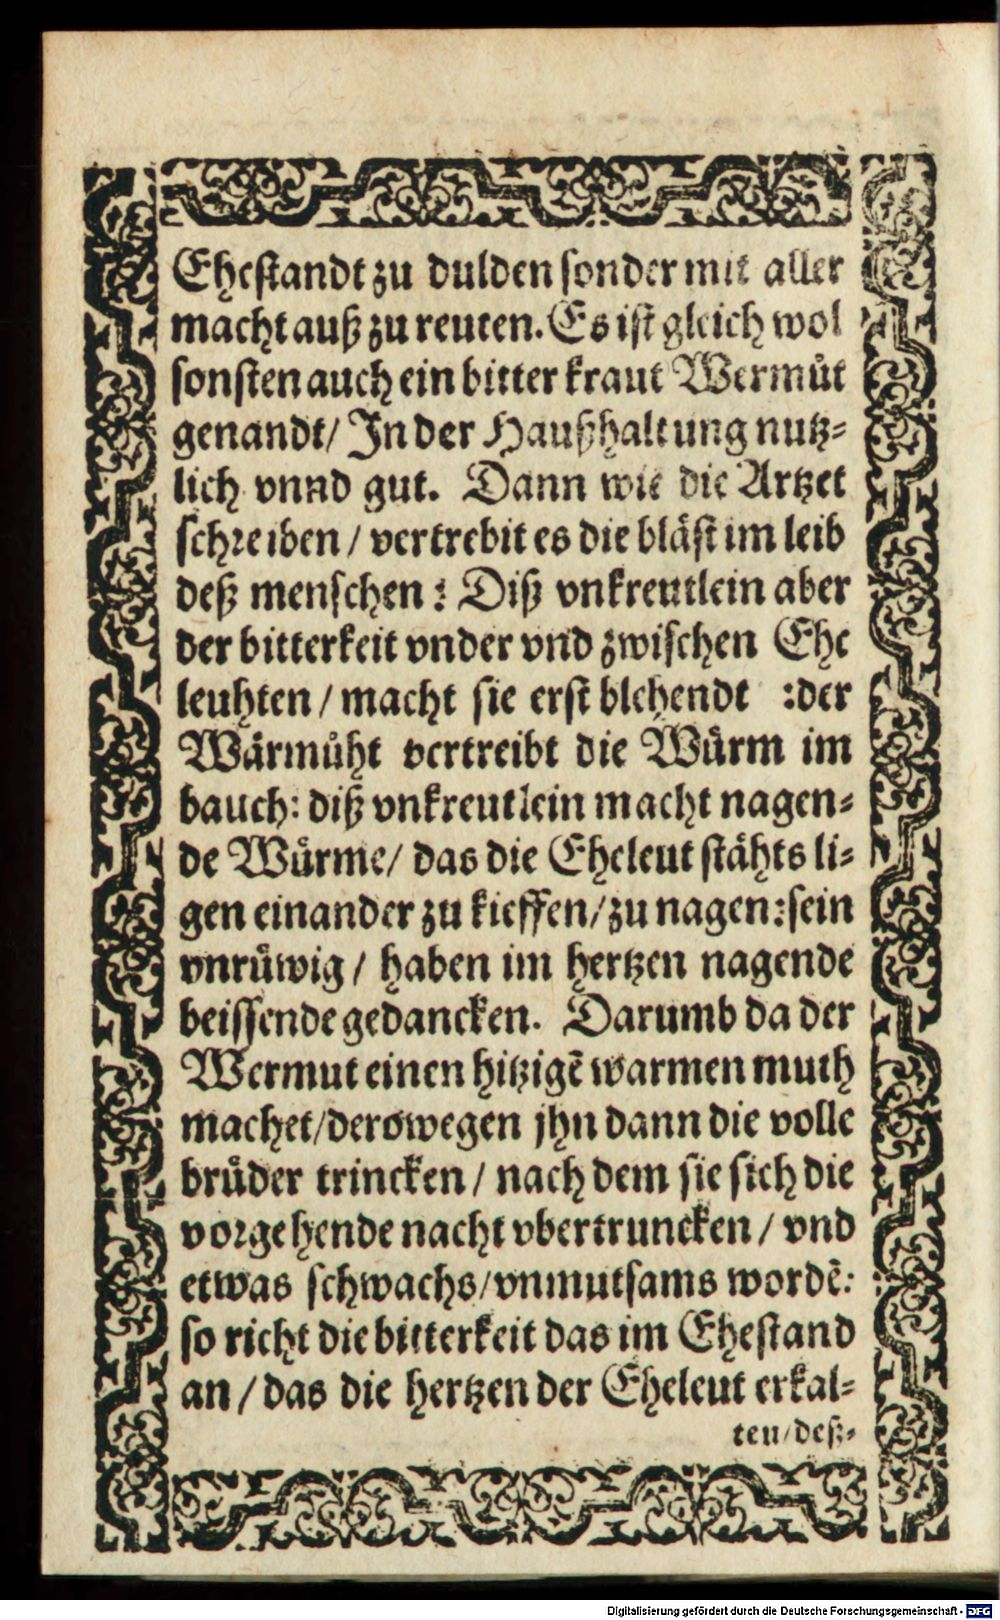 Ehestandt zu dulden sonder mit aller
macht auß zu reuten. Es ist gleich wol
sonsten auch ein bitter kraut Wermůt
genandt/ In der Haußhaltung nutz⸗
lich vnnd gut. Dann wie die Artzet
schreiben / vertrebit es die bläst im leib
deß menschen: Diß vnkreutlein aber
der bitterkeit vnder vnd zwischen Ehe
leuhten / macht sie erst blehendt :der
Wärmůht vertreibt die Würm im
bauch: diß vnkreutlein macht nagen⸗
de Würme/ das die Eheleut stähts li⸗
gen einander zu kieffen/zu nagen:sein
vnrüwig / haben im hertzen nagende
beissende gedancken. Darumb da der
Wermut einen hitzigẽ warmen muth
machet/derowegen jhn dann die volle
brůder trincken / nach dem sie sich die
vorgehende nacht vbertruncken / vnd
etwas schwachs/vnmutsams wordẽ:
so richt die bitterkeit das im Ehestand
an / das die hertzen der Eheleut erkal⸗
ten/deß⸗
Digitalisierung gefördert durch die Deutsche Forschungsgemeinschaft - DFG